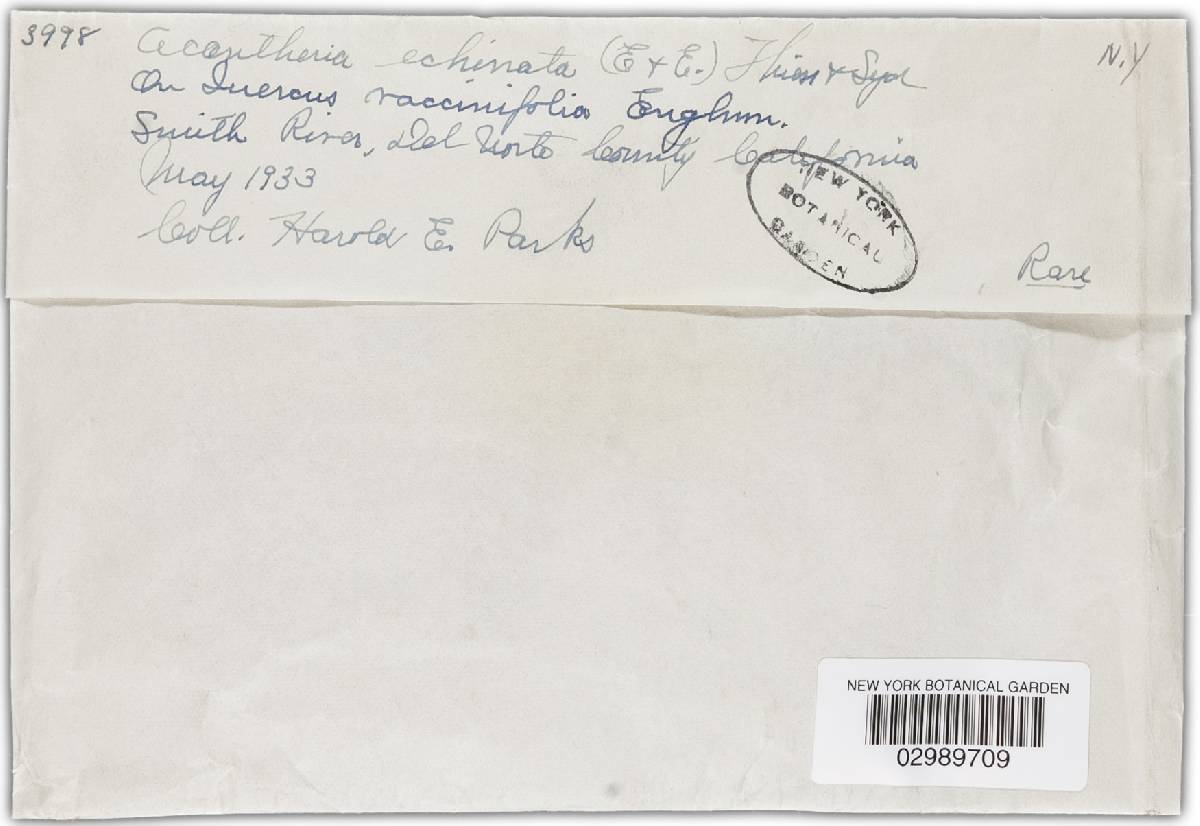 3998 Acantheria echinata (E & E.) Thiess & Syd N.Y
On Quercus vaccinifolia Englnm.
Smith River, Del Norte County California
May 1933
Coll. Harold E. Parks
NEW YORK
BOTANICAL
GARDEN
Rare
NEW YORK BOTANICAL GARDEN
02989709